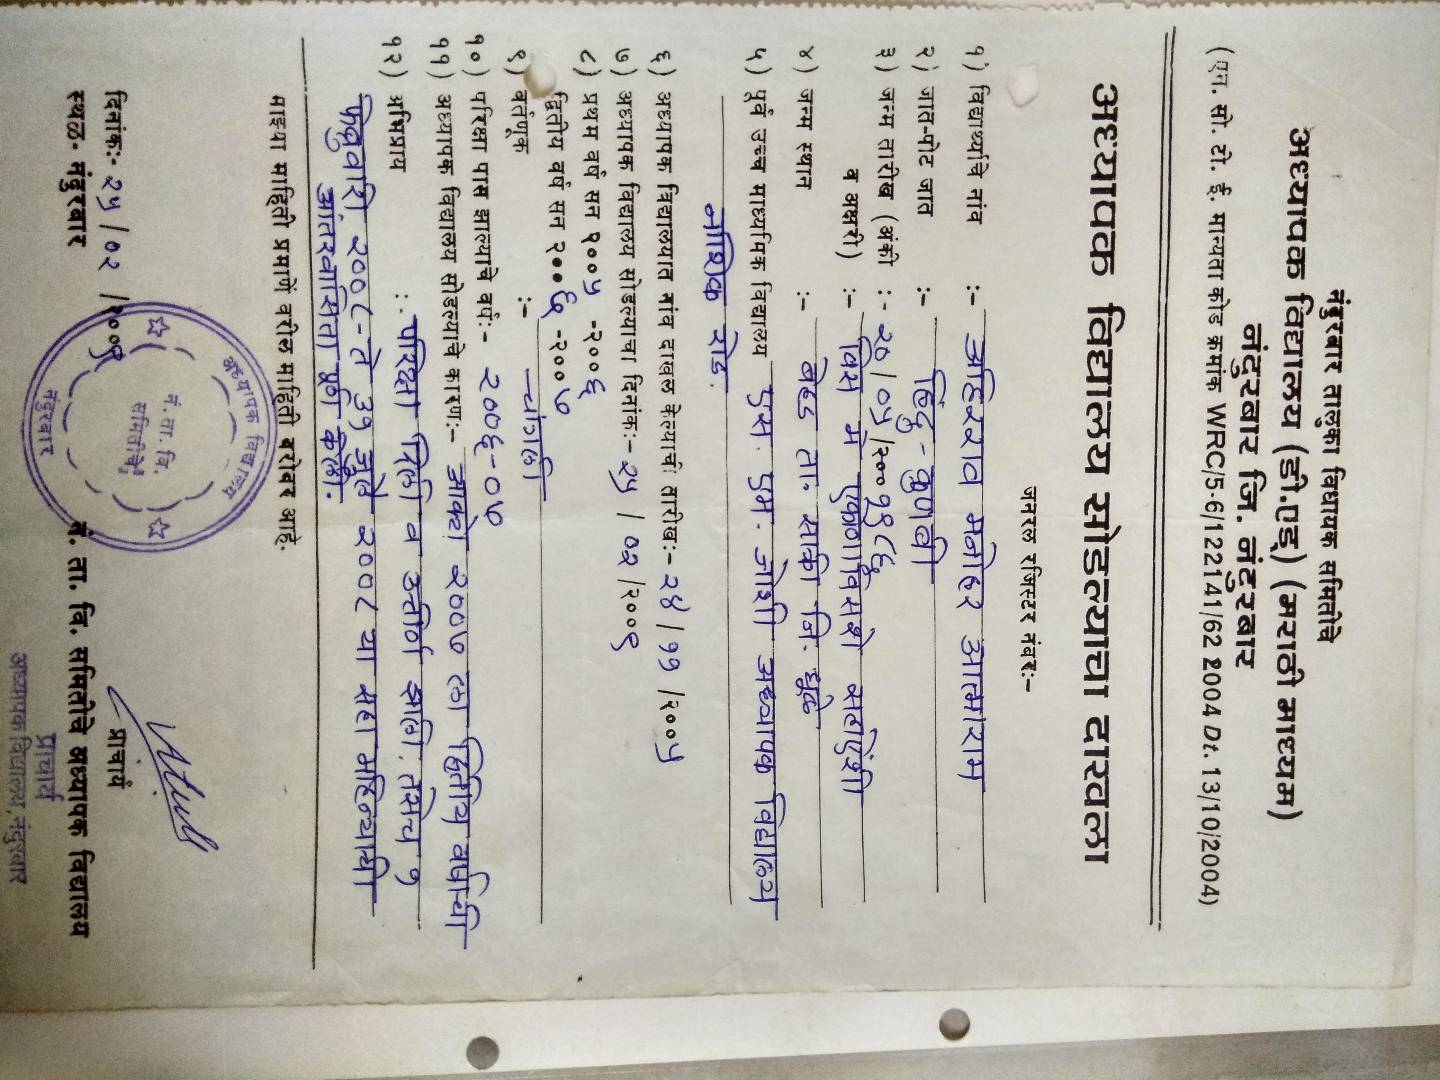 नंदुरबार तालुका विधायक समितीचे
अध्यापक विद्यालय (डी.एड्) (मराठी माध्यम)
नंदुरबार जि. नंदुरबार
(एन. सी. टी. ई. मान्यता कोड क्रमांक WRC/5-6/122141/62 2004 Dt. 13/10/2004)
अध्यापक विद्यालय सोडल्याचा दाखला
जनरल रजिस्टर नंबर:-
१) विद्यार्थ्याचे नांव :- अहिरराव मनोहर आत्माराम
२) जात-पोट जात :- हिंदु - कुणबी
३) जन्म तारीख (अंकी :- २० / ०५ / १९८६
व अक्षरी) :- विस मे एकोणाविसशे सहाऐंशी
४) जन्म स्थान :- बेहेड ता. साक्री जि. धुळे
५) पुर्व उच्च माध्यमिक विद्यालय एस. एम. जोशी अध्यापक विद्यालय
नाशिक रोड.
६) अध्यापक विद्यालयात नांव दाखल केल्याची तारीख:- २४ / ११ / २००५
७) अध्यापक विद्यालय सोडल्याचा दिनांक:- २५ / ०२ / २००९
८) प्रथम वर्ष सन २००५ -२००६
द्वितीय वर्ष सन २००६ -२००७
९) वर्तणूक :- चांगली
१०) परिक्षा पास झाल्याचे वर्ष:- २००६-०७
११) अध्यापक विद्यालय सोडल्याचे कारण:- ऑक्टो २००७ ला द्वितीय वर्षाची
१२) अभिप्राय :- परिक्षा दिली व उत्तीर्ण झाली. तसेच १
फेब्रुवारी २००८ - ते ३१ जुलै २००८ या सहा महिन्याची
आंतरवासिता पूर्ण केली.
माझ्या माहिती प्रमाणें वरील माहिती बरोबर आहे.
दिनांक:- २५ / ०२ / २००९
स्थळ- नंदुरबार
अध्यापक विद्यालय
नं. ता. वि.
समितीचे
नंदुरबार
प्राचार्य
नं. ता. वि. समितीचे अध्यापक विद्यालय
प्राचार्य
अध्यापक विद्यालय, नंदुरबार